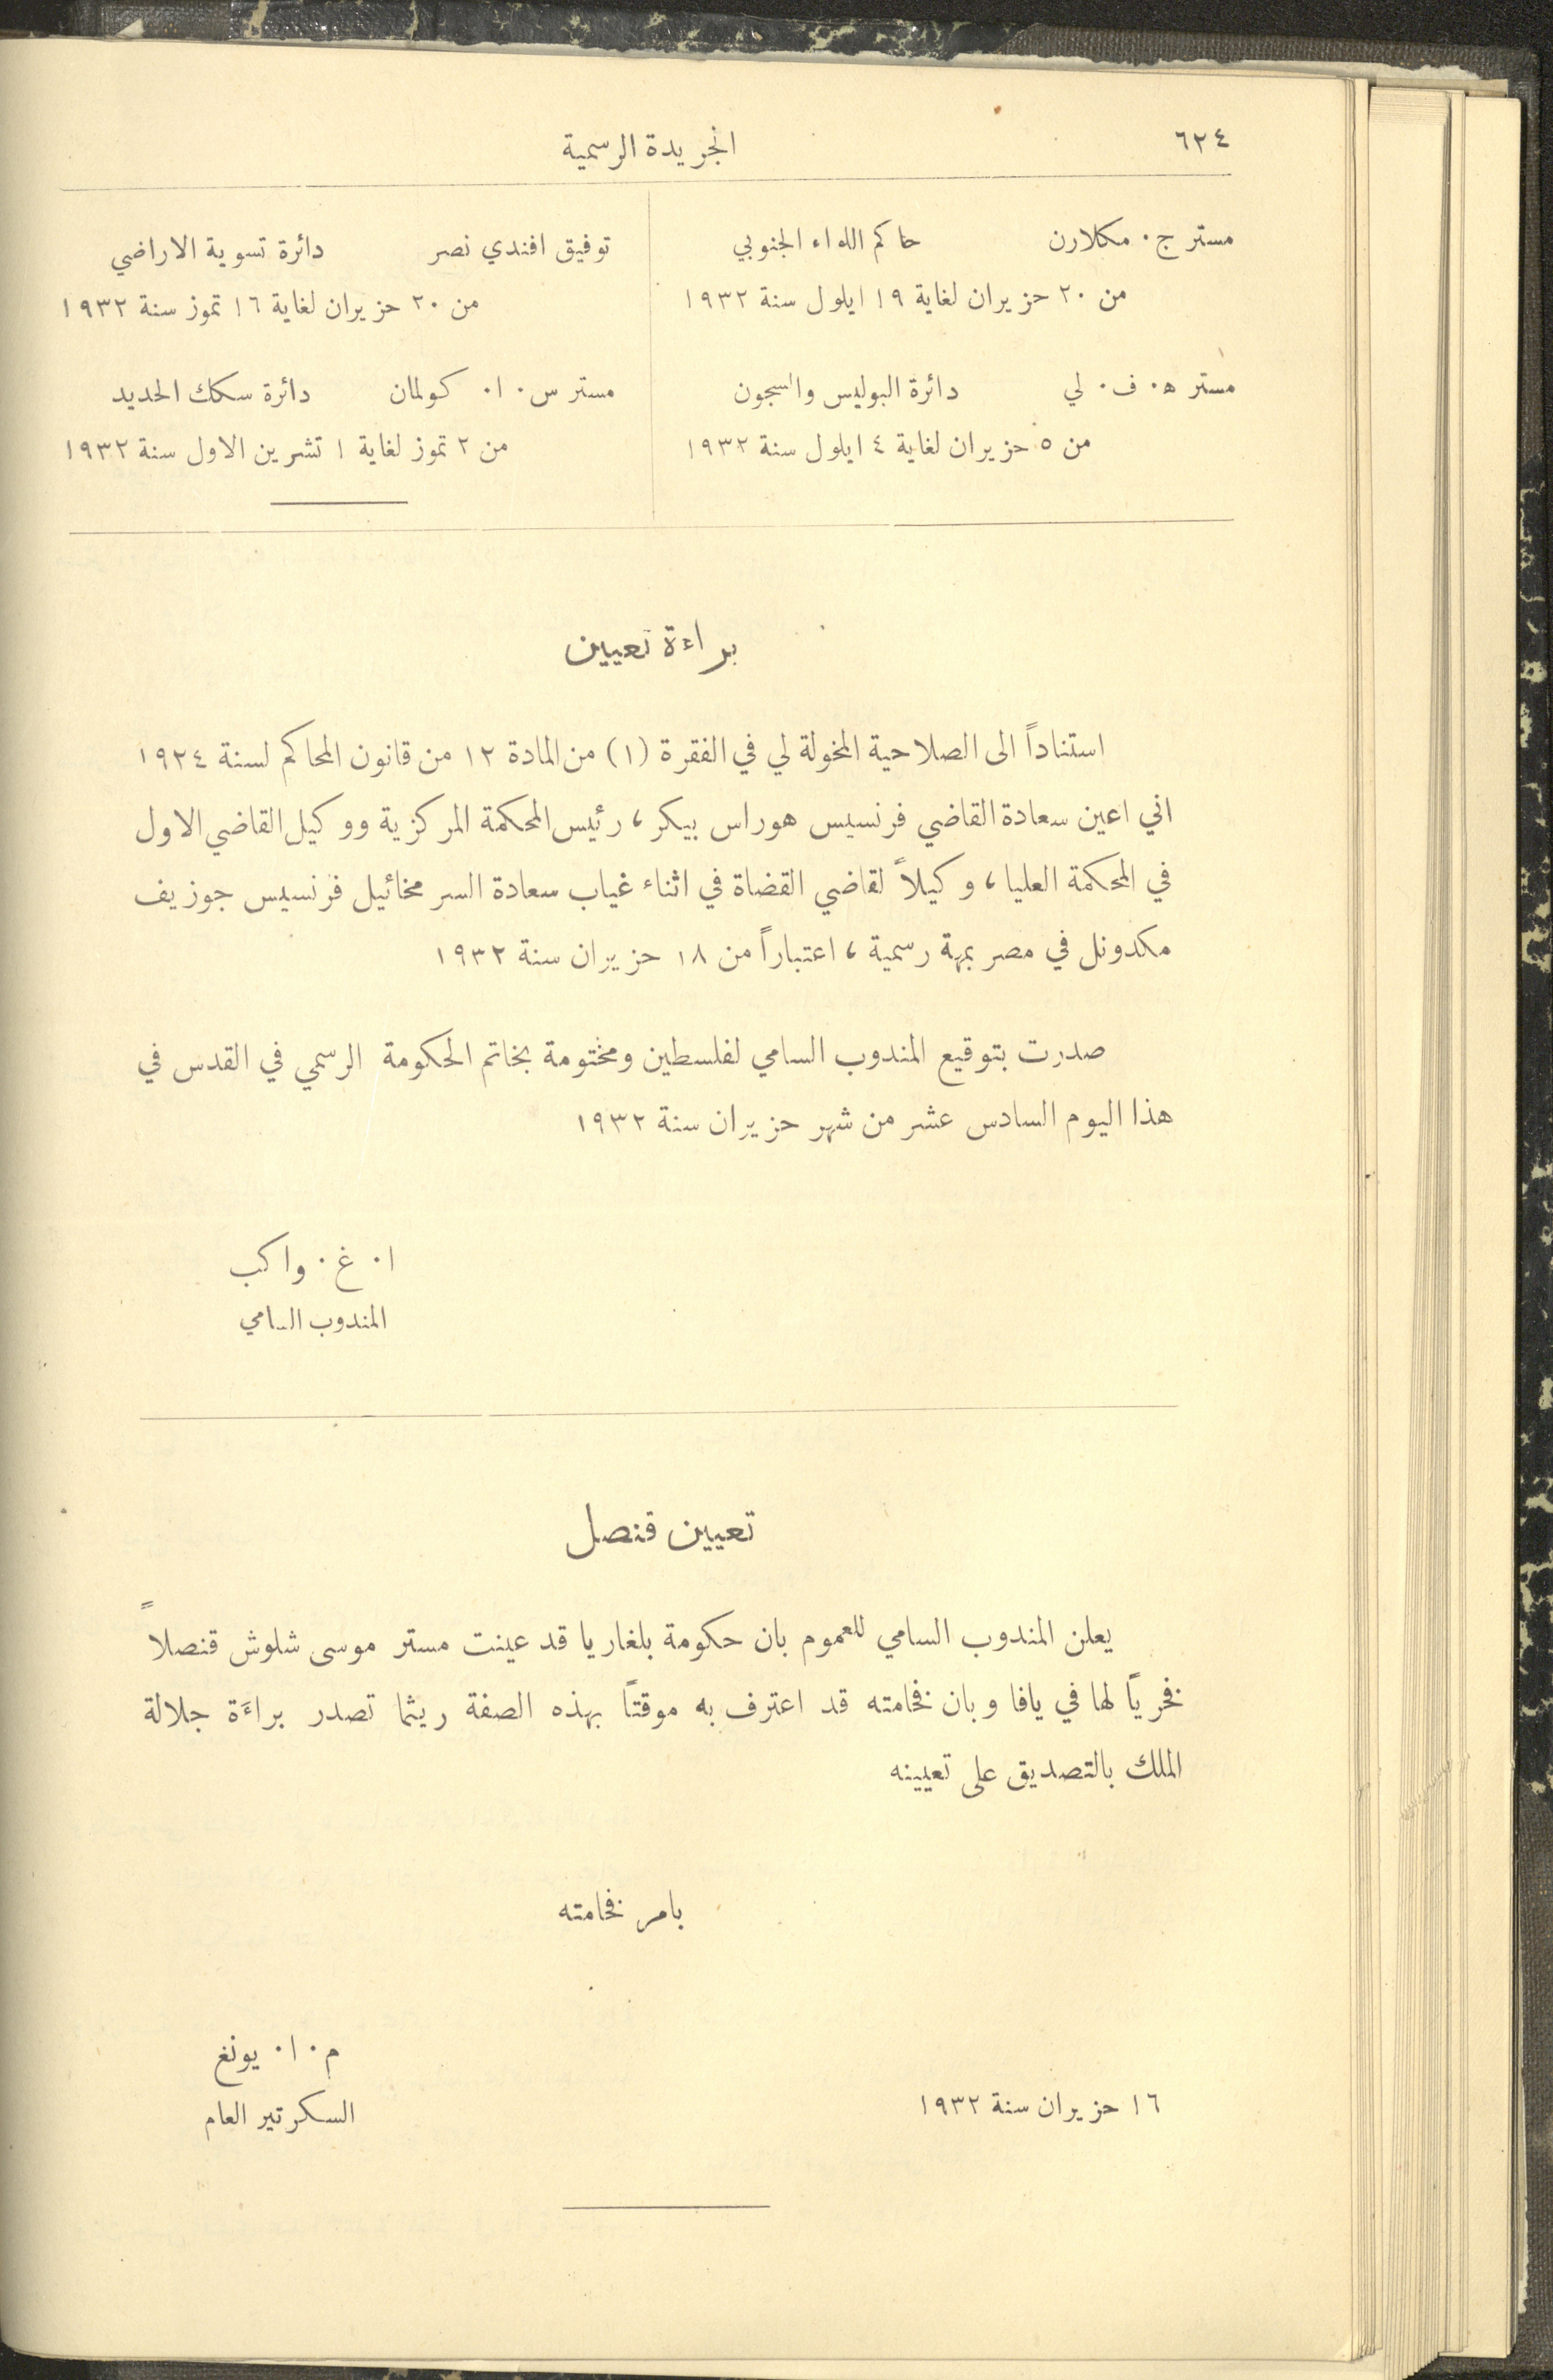 ٦٢٤
الجريدة الرسمية
مستر ج. مكلارن حاكم اللواء الجنوبي
من ٢٠ حزيران لغاية ١٩ ايلول سنة ١٩٣٢
مستر ه. ف. لي دائرة البوليس والسجون
من ٥ حزيران لغاية ٤ ايلول سنة ١٩٣٢
توفيق افندي نصر دائرة تسوية الاراضي
من ٢٠ حزيران لغاية ١٦ تموز سنة ١٩٣٢
مستر س. ا. كولمان دائرة سكك الحديد
من ٢ تموز لغاية ١ تشرين الاول سنة ١٩٣٢
براءة تعيين
استناداً الى الصلاحية المخولة لي في الفقرة (١) من المادة ١٢ من قانون المحاكم لسنة ١٩٢٤
اني اعين سعادة القاضي فرنسيس هوراس بيكر، رئيس المحكمة المركزية ووكيل القاضي الاول
في المحكمة العليا، وكيلاً لقاضي القضاة في اثناء غياب سعادة السر مخائيل فرنسيس جوزيف
مكدونل في مصر بمهة رسمية، اعتباراً من ١٨ حزيران سنة ١٩٣٢
صدرت بتوقيع المندوب السامي لفلسطين ومختومة بخاتم الحكومة الرسمي في القدس في
هذا اليوم السادس عشر من شهر حزيران سنة ١٩٣٢
ا. غ. واكب
المندوب السامي
تعيين قنصل
يعلن المندوب السامي للعموم بان حكومة بلغاريا قد عينت مستر موسى شلوش قنصلاً
فخرياً لها في يافا وبان فخامته قد اعترف به موقتاً بهذه الصفة ريثما تصدر براءَة جلالة
الملك بالتصديق على تعيينه
بامر فخامته
م. ا. يونغ
١٦ حزيران سنة ١٩٣٢
السكرتير العام